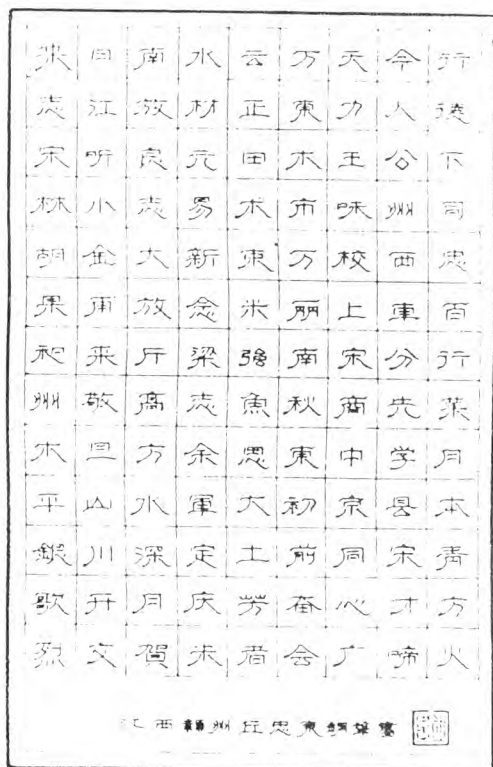 行後下司忠百行葉月本青方火
今人公州西車分先学县宋才啼
天力王味校上宋商中京同心广
万東木市万丽南秋東初前奋会
云正田术東米強魚思大土芳者
水材元易新念梁志余軍定庆朱
南放良志大放斤高方水深月賀
向江听小金甫采敬旦山川开文
米志宋林胡果祀州木平銀歌烈
江西赣州丘忠東鋼筆書